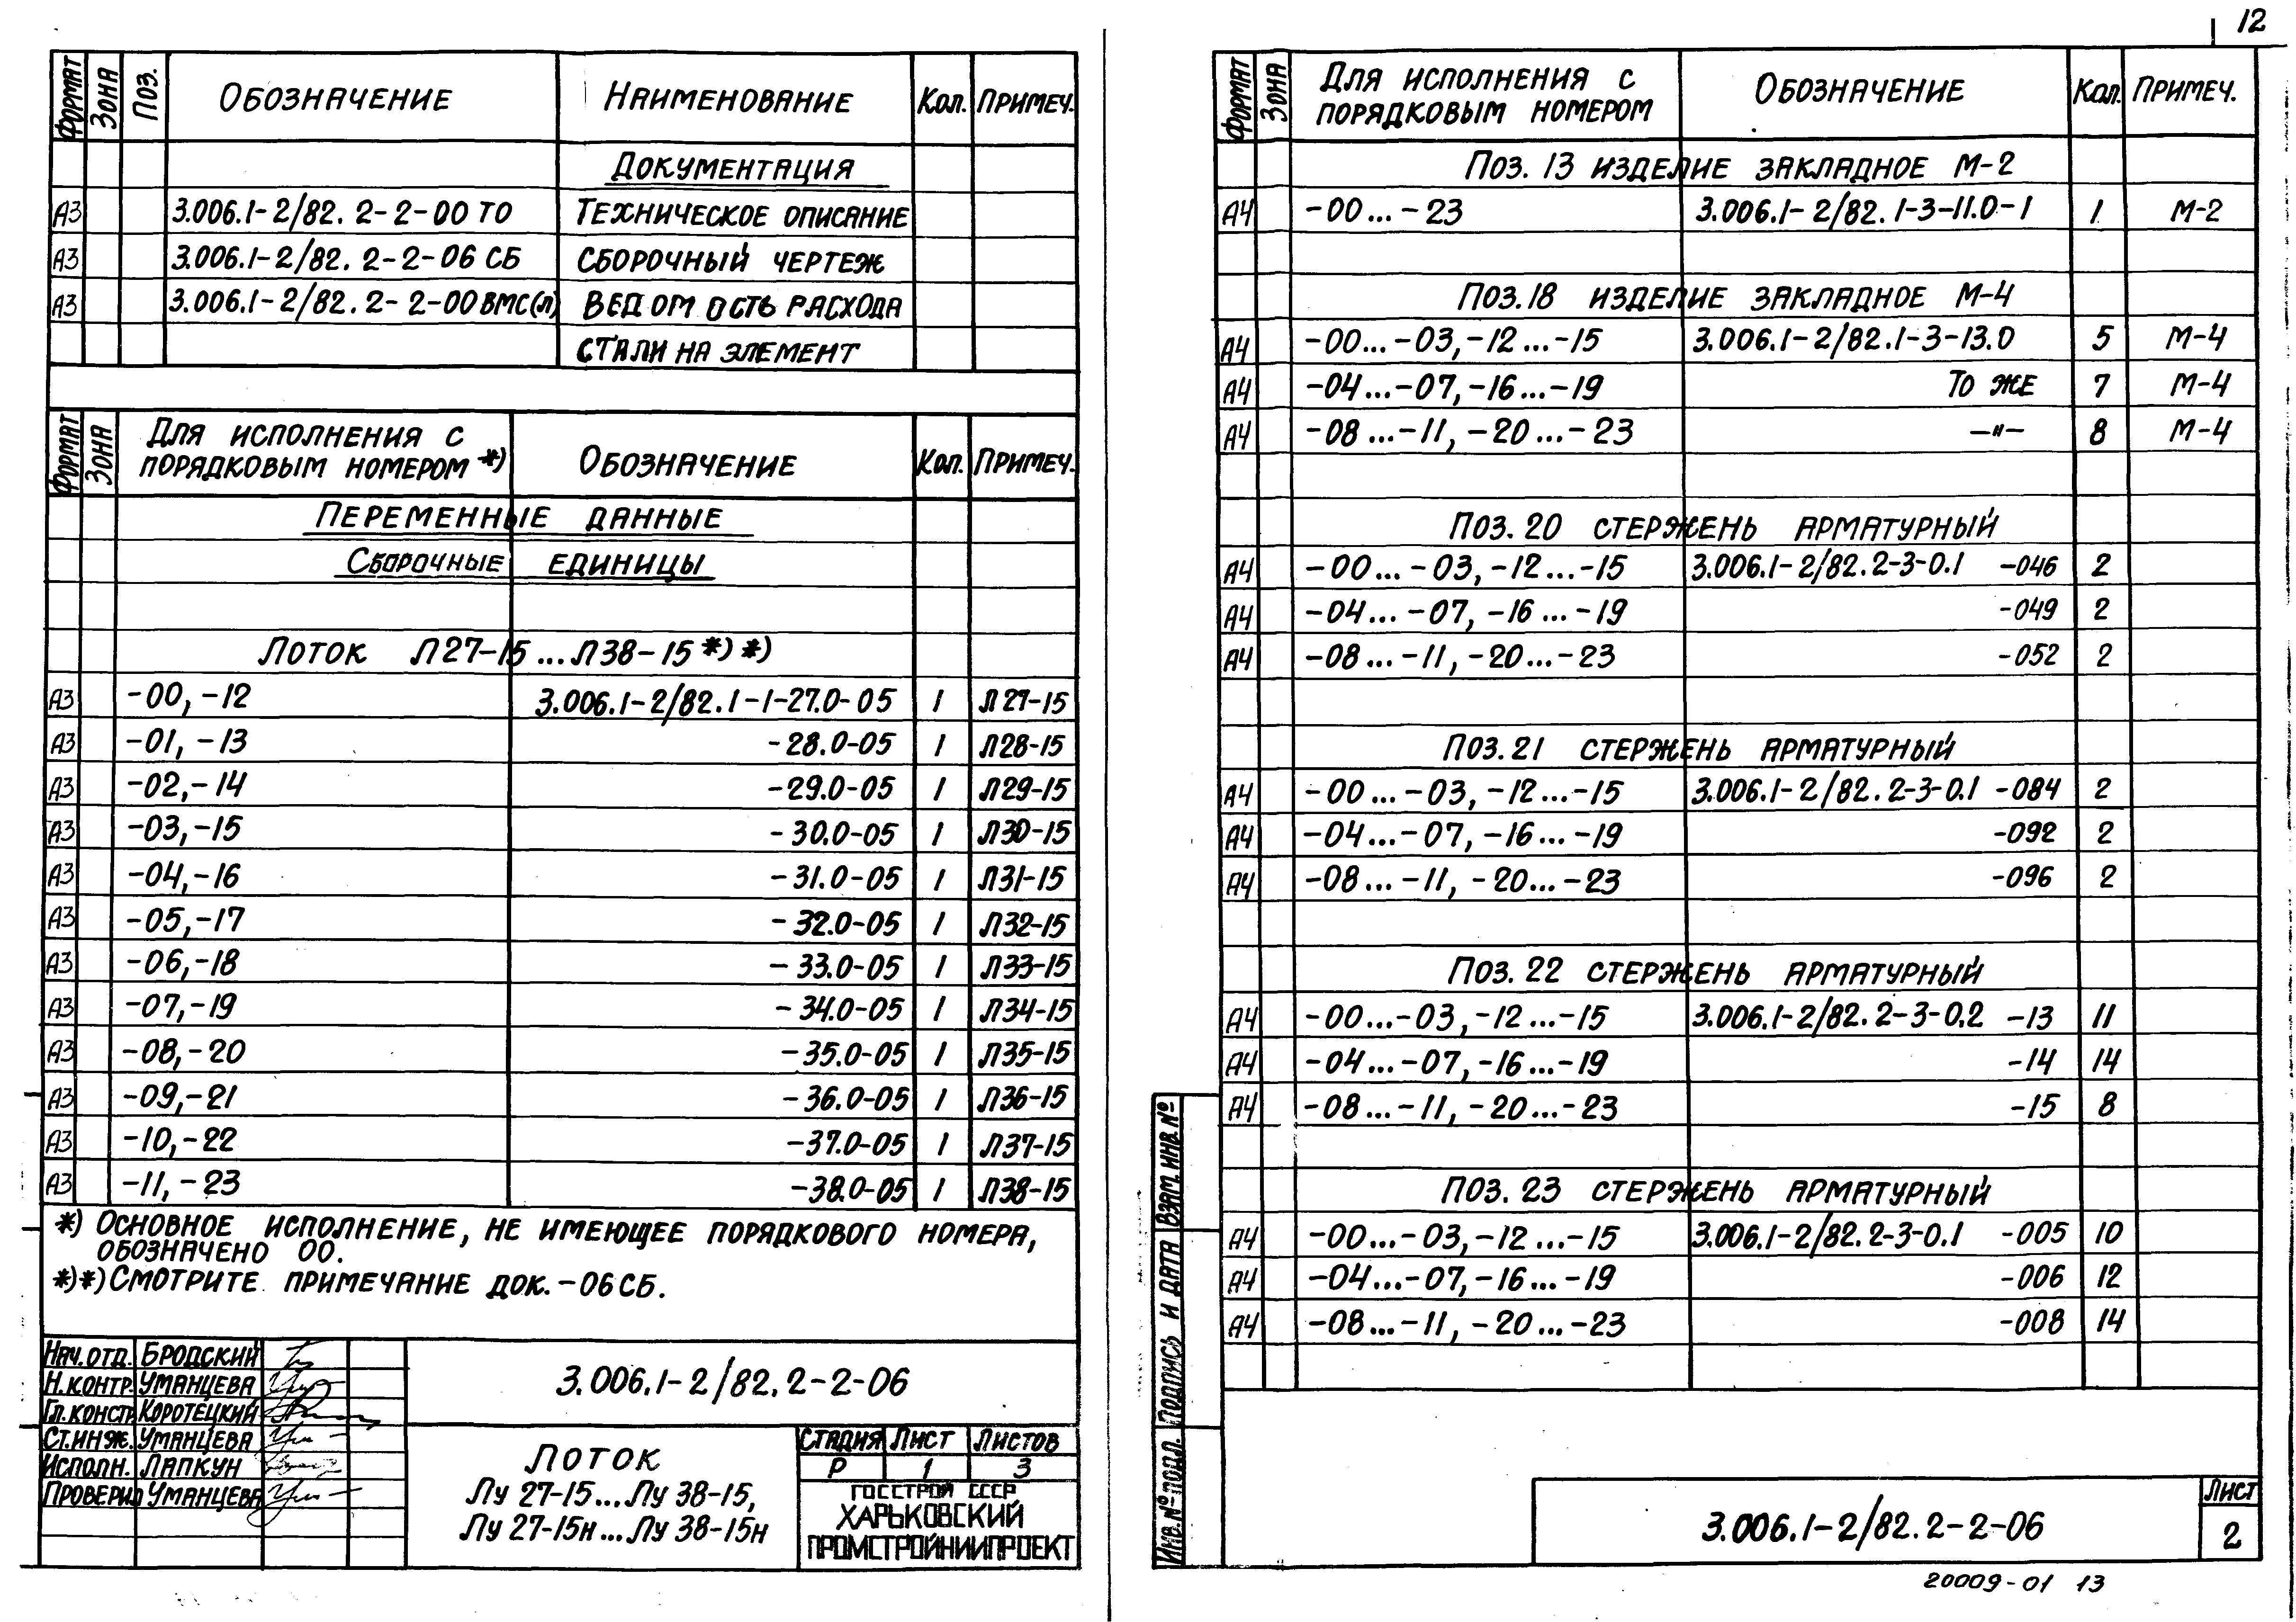 12
ФОРМАТ ЗОНА ПОЗ. ОБОЗНАЧЕНИЕ НАИМЕНОВАНИЕ КОЛ. ПРИМЕЧ.
ДОКУМЕНТАЦИЯ
А3 3.006.1-2/82. 2-2-00 ТО ТЕХНИЧЕСКОЕ ОПИСАНИЕ
А3 3.006.1-2/82. 2-2-06 СБ СБОРОЧНЫЙ ЧЕРТЕЖ
А3 3.006.1-2/82. 2-2-00 ВМС(Л) ВЕДОМОСТЬ РАСХОДА
СТАЛИ НА ЭЛЕМЕНТ
ФОРМАТ ЗОНА ДЛЯ ИСПОЛНЕНИЯ С ПОРЯДКОВЫМ НОМЕРОМ *) ОБОЗНАЧЕНИЕ КОЛ. ПРИМЕЧ.
ПЕРЕМЕННЫЕ ДАННЫЕ
СБОРОЧНЫЕ ЕДИНИЦЫ
ЛОТОК Л27-15...Л38-15 *) *)
А3 -00, -12 3.006.1-2/82.1-1-27.0-05 1 Л27-15
А3 -01, -13 -28.0-05 1 Л28-15
А3 -02, -14 -29.0-05 1 Л29-15
А3 -03, -15 -30.0-05 1 Л30-15
А3 -04, -16 -31.0-05 1 Л31-15
А3 -05, -17 -32.0-05 1 Л32-15
А3 -06, -18 -33.0-05 1 Л33-15
А3 -07, -19 -34.0-05 1 Л34-15
А3 -08, -20 -35.0-05 1 Л35-15
А3 -09, -21 -36.0-05 1 Л36-15
А3 -10, -22 -37.0-05 1 Л37-15
А3 -11, -23 -38.0-05 1 Л38-15
*) ОСНОВНОЕ ИСПОЛНЕНИЕ, НЕ ИМЕЮЩЕЕ ПОРЯДКОВОГО НОМЕРА,
ОБОЗНАЧЕНО 00.
*)*) СМОТРИТЕ ПРИМЕЧАНИЕ ДОК. -06 СБ.
НАЧ. ОТД. БРОДСКИЙ
Н. КОНТР. УМАНЦЕВА
ГЛ. КОНСТР. КОРОТЕЦКИЙ
СТ. ИНЖ. УМАНЦЕВА
ИСПОЛН. ЛАПКУН
ПРОВЕРИЛ УМАНЦЕВА
3.006.1-2/82.2-2-06
ЛОТОК
Лу 27-15...Лу 38-15,
Лу 27-15н...Лу 38-15н
СТАДИЯ ЛИСТ ЛИСТОВ
Р 1 3
ГОССТРОЙ СССР
ХАРЬКОВСКИЙ
ПРОМСТРОЙНИИПРОЕКТ
ФОРМАТ ЗОНА ДЛЯ ИСПОЛНЕНИЯ С ПОРЯДКОВЫМ НОМЕРОМ ОБОЗНАЧЕНИЕ КОЛ. ПРИМЕЧ.
ПОЗ. 13 ИЗДЕЛИЕ ЗАКЛАДНОЕ М-2
А4 -00...-23 3.006.1-2/82.1-3-11.0-1 1 М-2
ПОЗ. 18 ИЗДЕЛИЕ ЗАКЛАДНОЕ М-4
А4 -00...-03, -12...-15 3.006.1-2/82.1-3-13.0 5 М-4
А4 -04...-07, -16...-19 ТО ЖЕ 7 М-4
А4 -08...-11, -20...-23 —"— 8 М-4
ПОЗ. 20 СТЕРЖЕНЬ АРМАТУРНЫЙ
А4 -00...-03, -12...-15 3.006.1-2/82.2-3-0.1 -046 2
А4 -04...-07, -16...-19 -049 2
А4 -08...-11, -20...-23 -052 2
ПОЗ. 21 СТЕРЖЕНЬ АРМАТУРНЫЙ
А4 -00...-03, -12...-15 3.006.1-2/82.2-3-0.1 -084 2
А4 -04...-07, -16...-19 -092 2
А4 -08...-11, -20...-23 -096 2
ПОЗ. 22 СТЕРЖЕНЬ АРМАТУРНЫЙ
А4 -00...-03, -12...-15 3.006.1-2/82.2-3-0.2 -13 11
А4 -04...-07, -16...-19 -14 14
А4 -08...-11, -20...-23 -15 8
ПОЗ. 23 СТЕРЖЕНЬ АРМАТУРНЫЙ
А4 -00...-03, -12...-15 3.006.1-2/82.2-3-0.1 -005 10
А4 -04...-07, -16...-19 -006 12
А4 -08...-11, -20...-23 -008 14
ИНВ. № ПОДЛ. ПОДПИСЬ И ДАТА ВЗАМ. ИНВ. №
3.006.1-2/82.2-2-06
ЛИСТ
2
20009-01 13